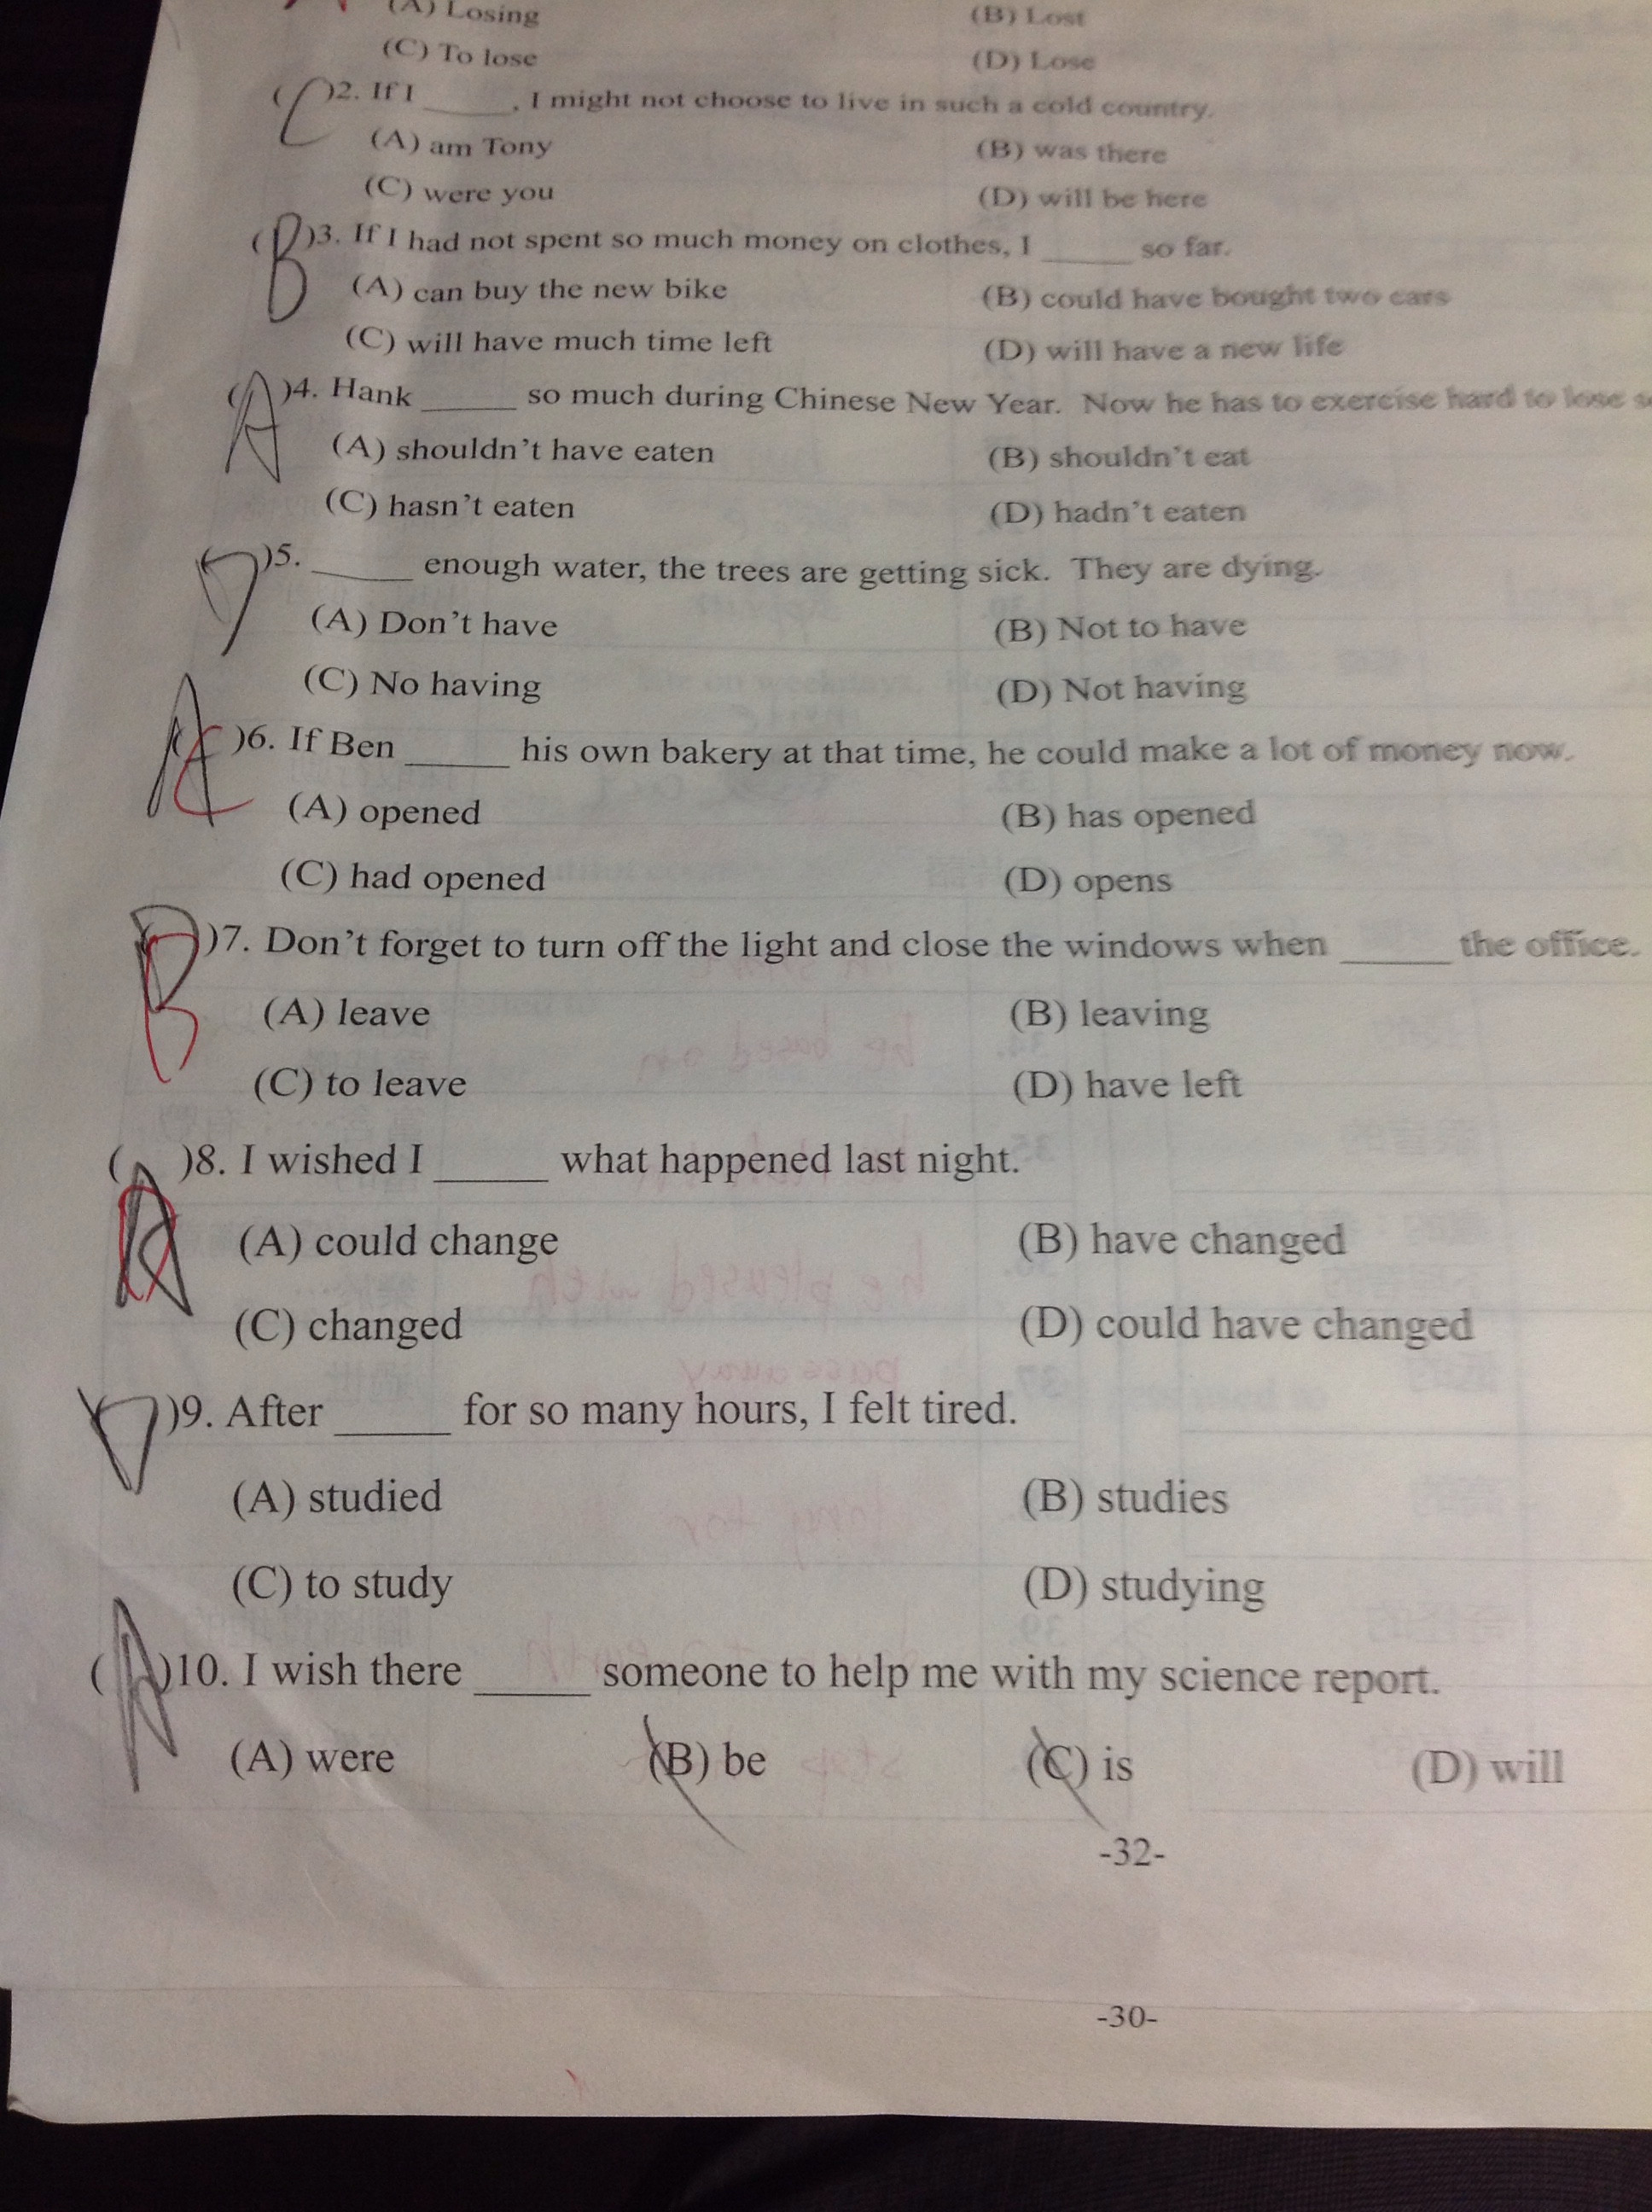 (A) Losing (B) Lost
(C) To lose (D) Lose
(C)2. If I ______, I might not choose to live in such a cold country.
(A) am Tony (B) was there
(C) were you (D) will be here
(B)3. If I had not spent so much money on clothes, I ______ so far.
(A) can buy the new bike (B) could have bought two cars
(C) will have much time left (D) will have a new life
(A)4. Hank ______ so much during Chinese New Year. Now he has to exercise hard to lose
(A) shouldn't have eaten (B) shouldn't eat
(C) hasn't eaten (D) hadn't eaten
(D)5. ______ enough water, the trees are getting sick. They are dying.
(A) Don't have (B) Not to have
(C) No having (D) Not having
(A C)6. If Ben ______ his own bakery at that time, he could make a lot of money now.
(A) opened (B) has opened
(C) had opened (D) opens
(B)7. Don't forget to turn off the light and close the windows when ______ the office.
(A) leave (B) leaving
(C) to leave (D) have left
(A D)8. I wished I ______ what happened last night.
(A) could change (B) have changed
(C) changed (D) could have changed
(D)9. After ______ for so many hours, I felt tired.
(A) studied (B) studies
(C) to study (D) studying
(A)10. I wish there ______ someone to help me with my science report.
(A) were (B) be (C) is (D) will
-32-
-30-